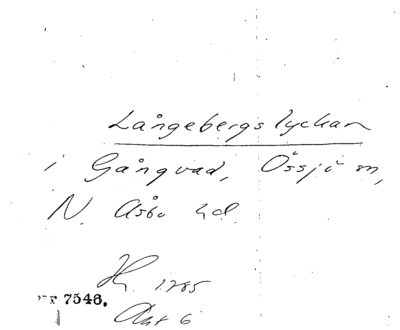 Långebergslyckan
i Gångvad, Össjö sn,
N. Åsbo hd.
Hy 1785
7548.
Akt 6